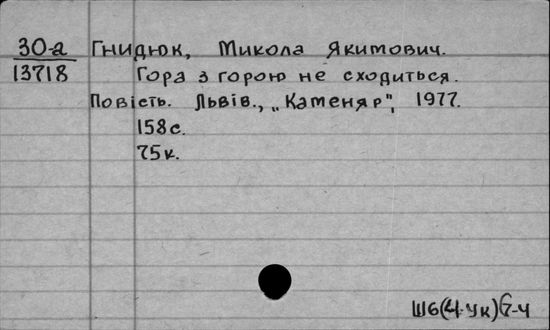 30-а Гнидюк, Микола Якимович.
13718 Гора з горою не сходиться.
Повість. Львів., „Каменяр", 1977.
158с.
75к.
Ш6(4Ук)6-4